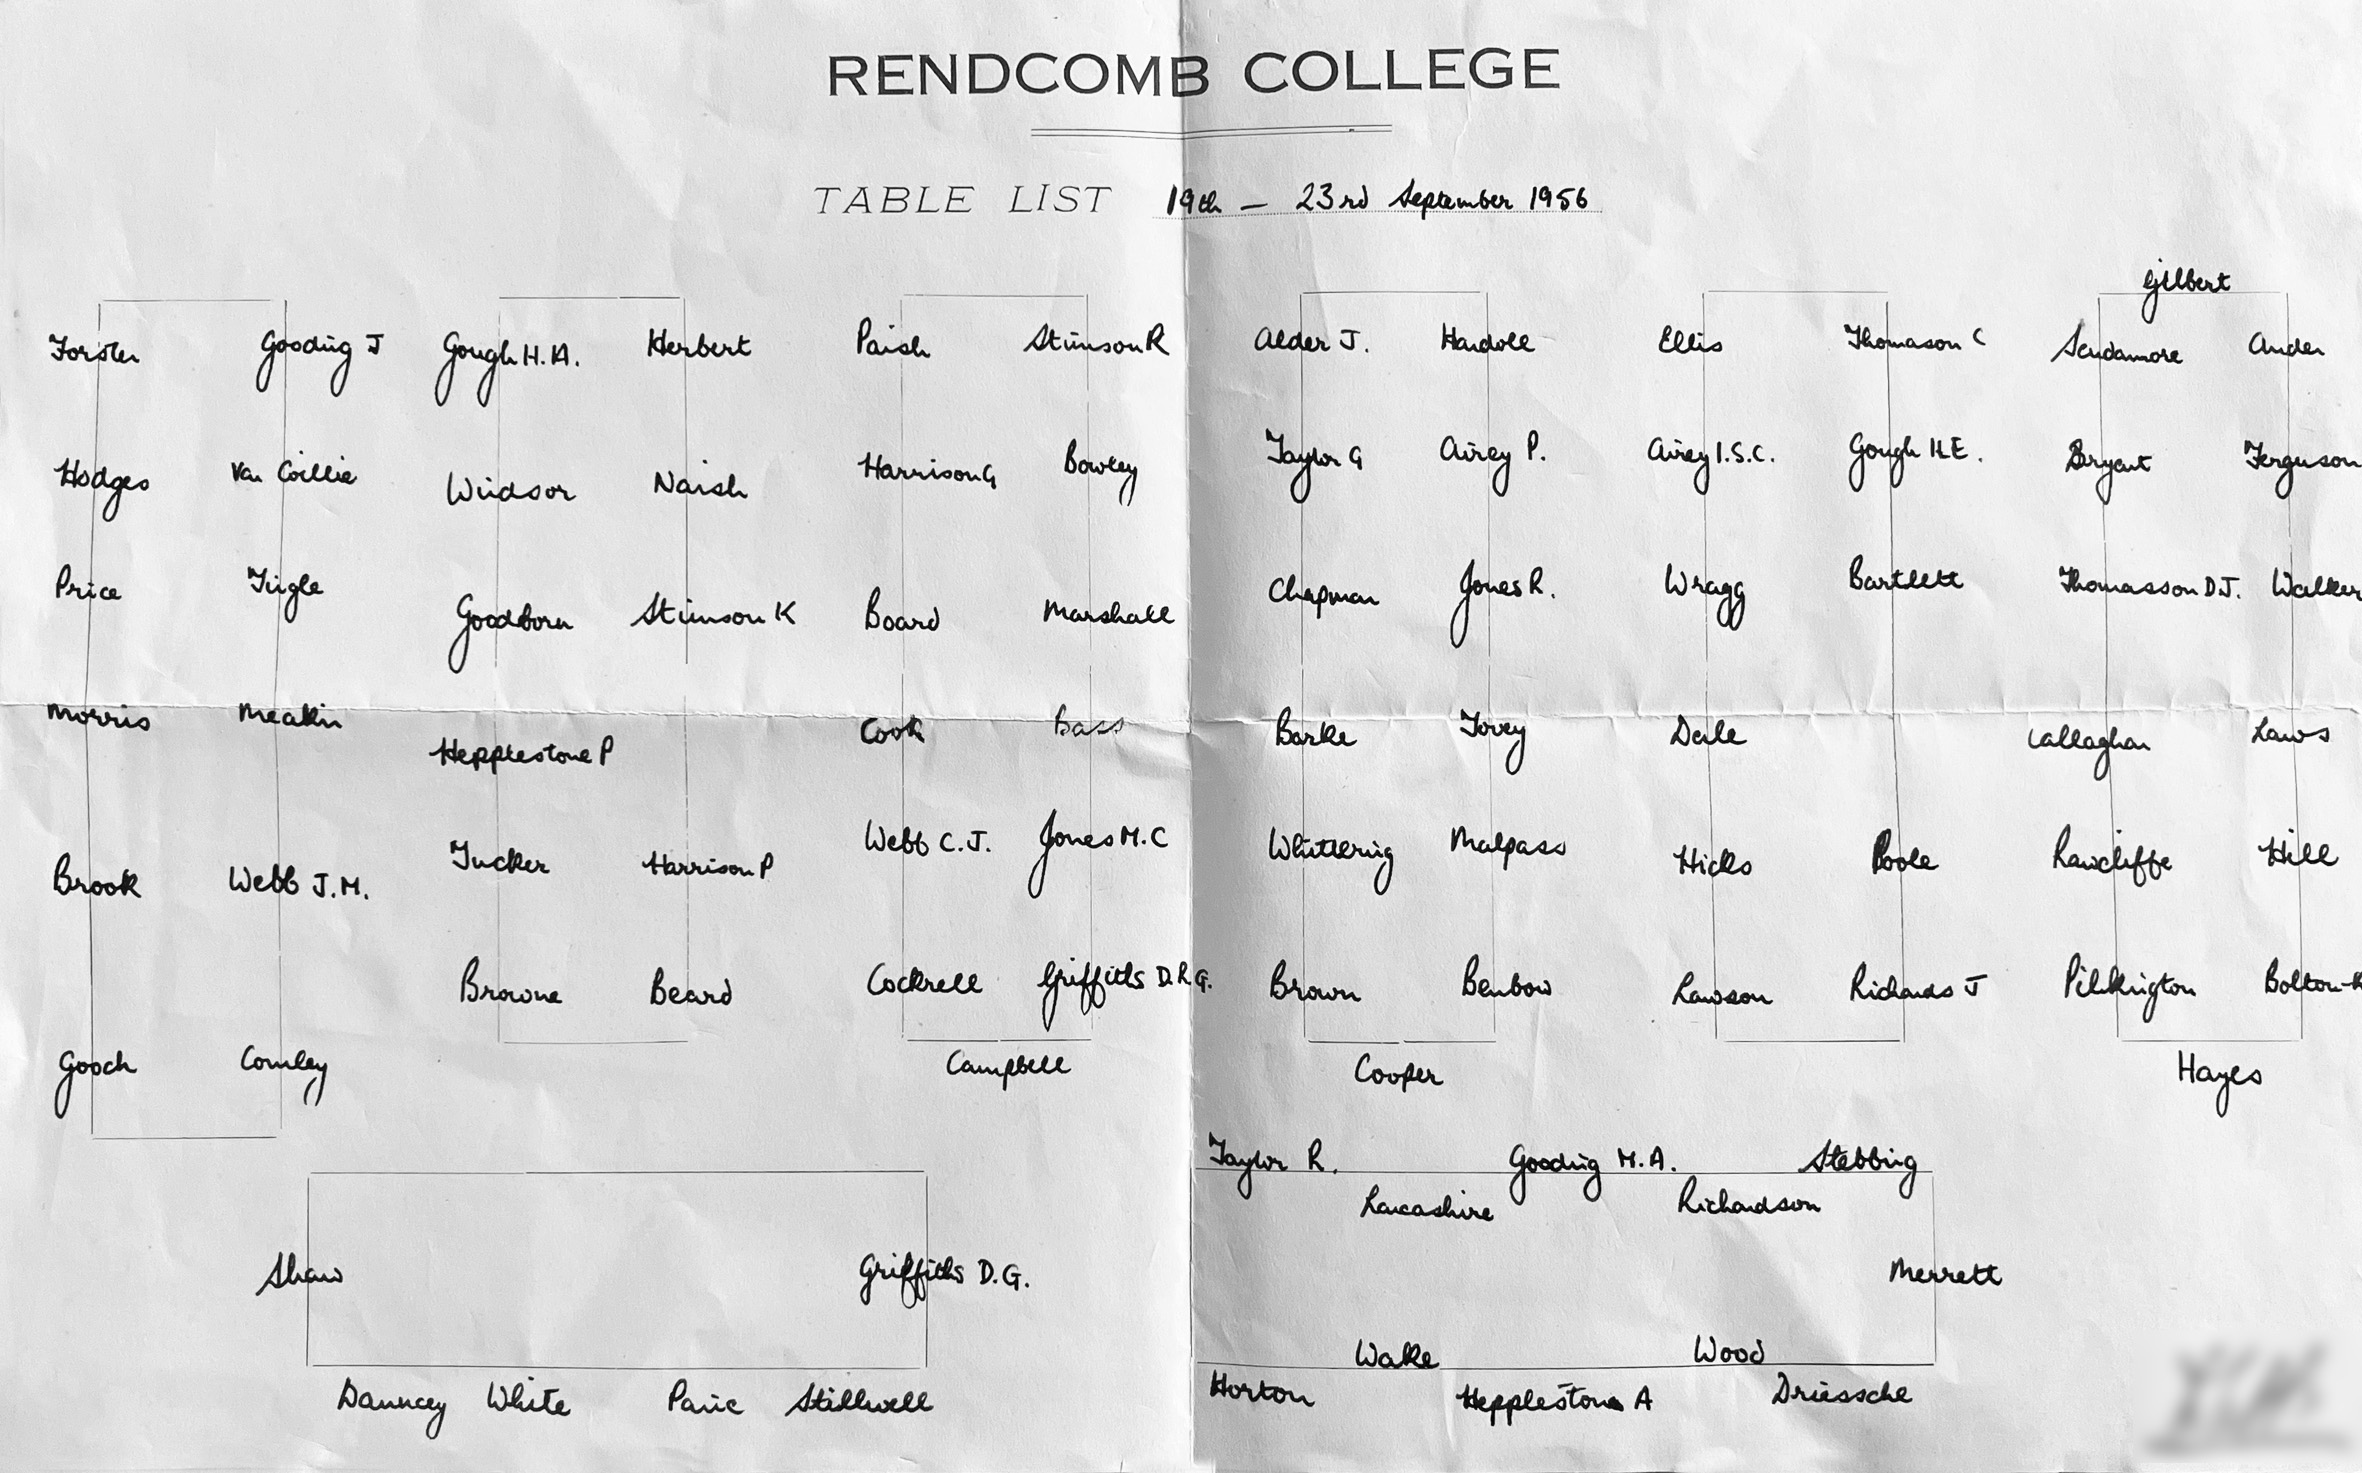 RENDCOMB COLLEGE
TABLE LIST 19th — 23rd September 1956
Gilbert
Forster Gooding J Gough H.A. Herbert Paish Stimson R Alder J. Ellis Thomason C Scudamore
Hodges Van Coillie Windsor Naish Harrison G Bowley Taylor G Airey P. Airey I.S.C. Gough H.E. Bryant Ferguson
Price Tingle Goodborn Stimson K Board Marshall Chapman Jones R. Wragg Bartlett Thomasson D.J. Walker
Morris Meakin Hepplestone P Cook Bass Barke Tovey Dale Callaghan Laws
Brook Webb J.M. Tucker Harrison P Webb C.J. Jones M.C Whittering Malpass Hicks Poole Rawcliffe Hill
Browne Beard Cockrell Griffiths D.R.G. Brown Benbow Lawson Richards J Pilkington
Gooch Comley Campbell Cooper Hayes
Taylor R. Gooding M.A. Stebbing
Lancashire Richardson
Shaw Griffiths D.G. Merrett
Wake Wood
Dauncey White Paric Stillwell Horton Hepplestone A Driessche